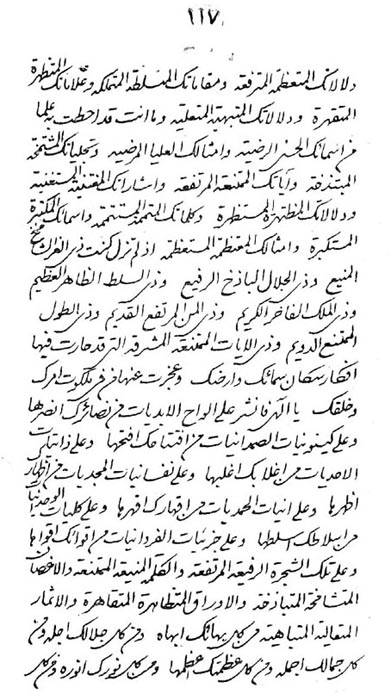 ١١٧
دلالاتك المتعظمة المترفعة ومقاماتك المتسلطة المتملكة وعلاماتك المتظهرة
المتقهرة ودلالاتك المتبهية المتعلية وما انت قد احطت به علما
من اسمائك الحسنى الرضية وامثالك العليا المرضية وتجلياتك المتشمخة
المتبذخة وآياتك الممتنعة المرتفعة واشاراتك المستغنية
ودلالاتك المتظهرة المستظهرة وكلماتك المتتمة المستتمة واسمائك المتكبرة
المستكبرة وامثالك المتعظمة المستعظمة اذ لم تزل كنت ذى العز الشامخ
المنيع وذى الجلال الباذخ الرفيع وذى السلط الظاهر العظيم
وذى الملك الفاخر الكريم وذى المن المرتفع القديم وذى الطول
الممتنع الدويم وذى الآيات الممتنعة المشرقة التى قد حارت فيها
افكار سكان سمائك وارضك وعجزت عنها من فى ملكوت امرك
وخلقك يا الهى فانشر على الواح الابديات من نصائرك انصرها
وعلى كينونيات الصمدانيات من افتتاحك افتحها وعلى ذاتيات
الاحديات من اغلابك اغلبها وعلى نفسانيات المجديات من اظهارك
اظهرها وعلى انيات الحمديات من اقهارك اقهرها وعلى كليات الوحدانيات
من اسلاطك اسلطها وعلى جزئيات الفردانيات من اقوائك اقواها
وعلى تلك الشجرة الرفيعة المرتفعة والكلمة المنيعة الممتنعة والاغصان
المتشامخة المتباذخة والاوراق المتظاهرة المتقاهرة والاثمار
المتعالية المتباهية من كل بهائك ابهاه ومن كل جلالك اجله ومن
كل جمالك اجمله ومن كل عظمتك اعظمها ومن كل نورك انوره ومن كل